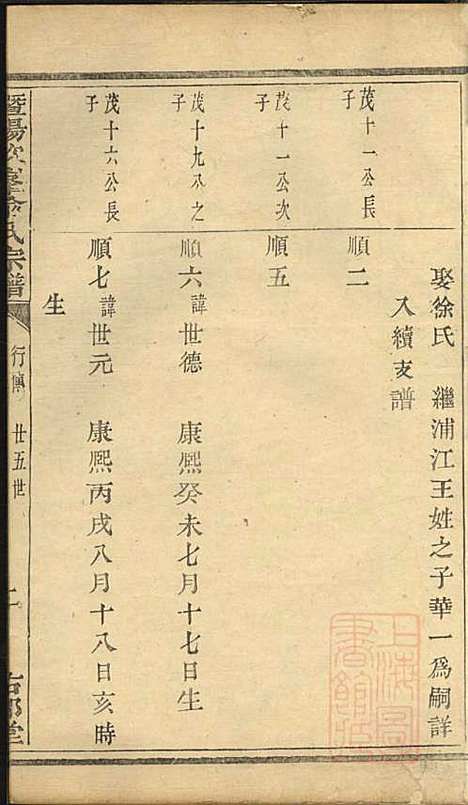 娶徐氏　繼浦江王姓之子華一爲嗣詳
入續支譜
茂十一公長子
順二
茂十一公次子
順五
茂十九公之子
順六諱世德　康熙癸未七月十七日生
茂十六公長子
順七諱世元　康熙丙戌八月十八日亥時
生
暨陽 峯 氏宗譜
行傳
廿五世
堂
上海圖書館藏